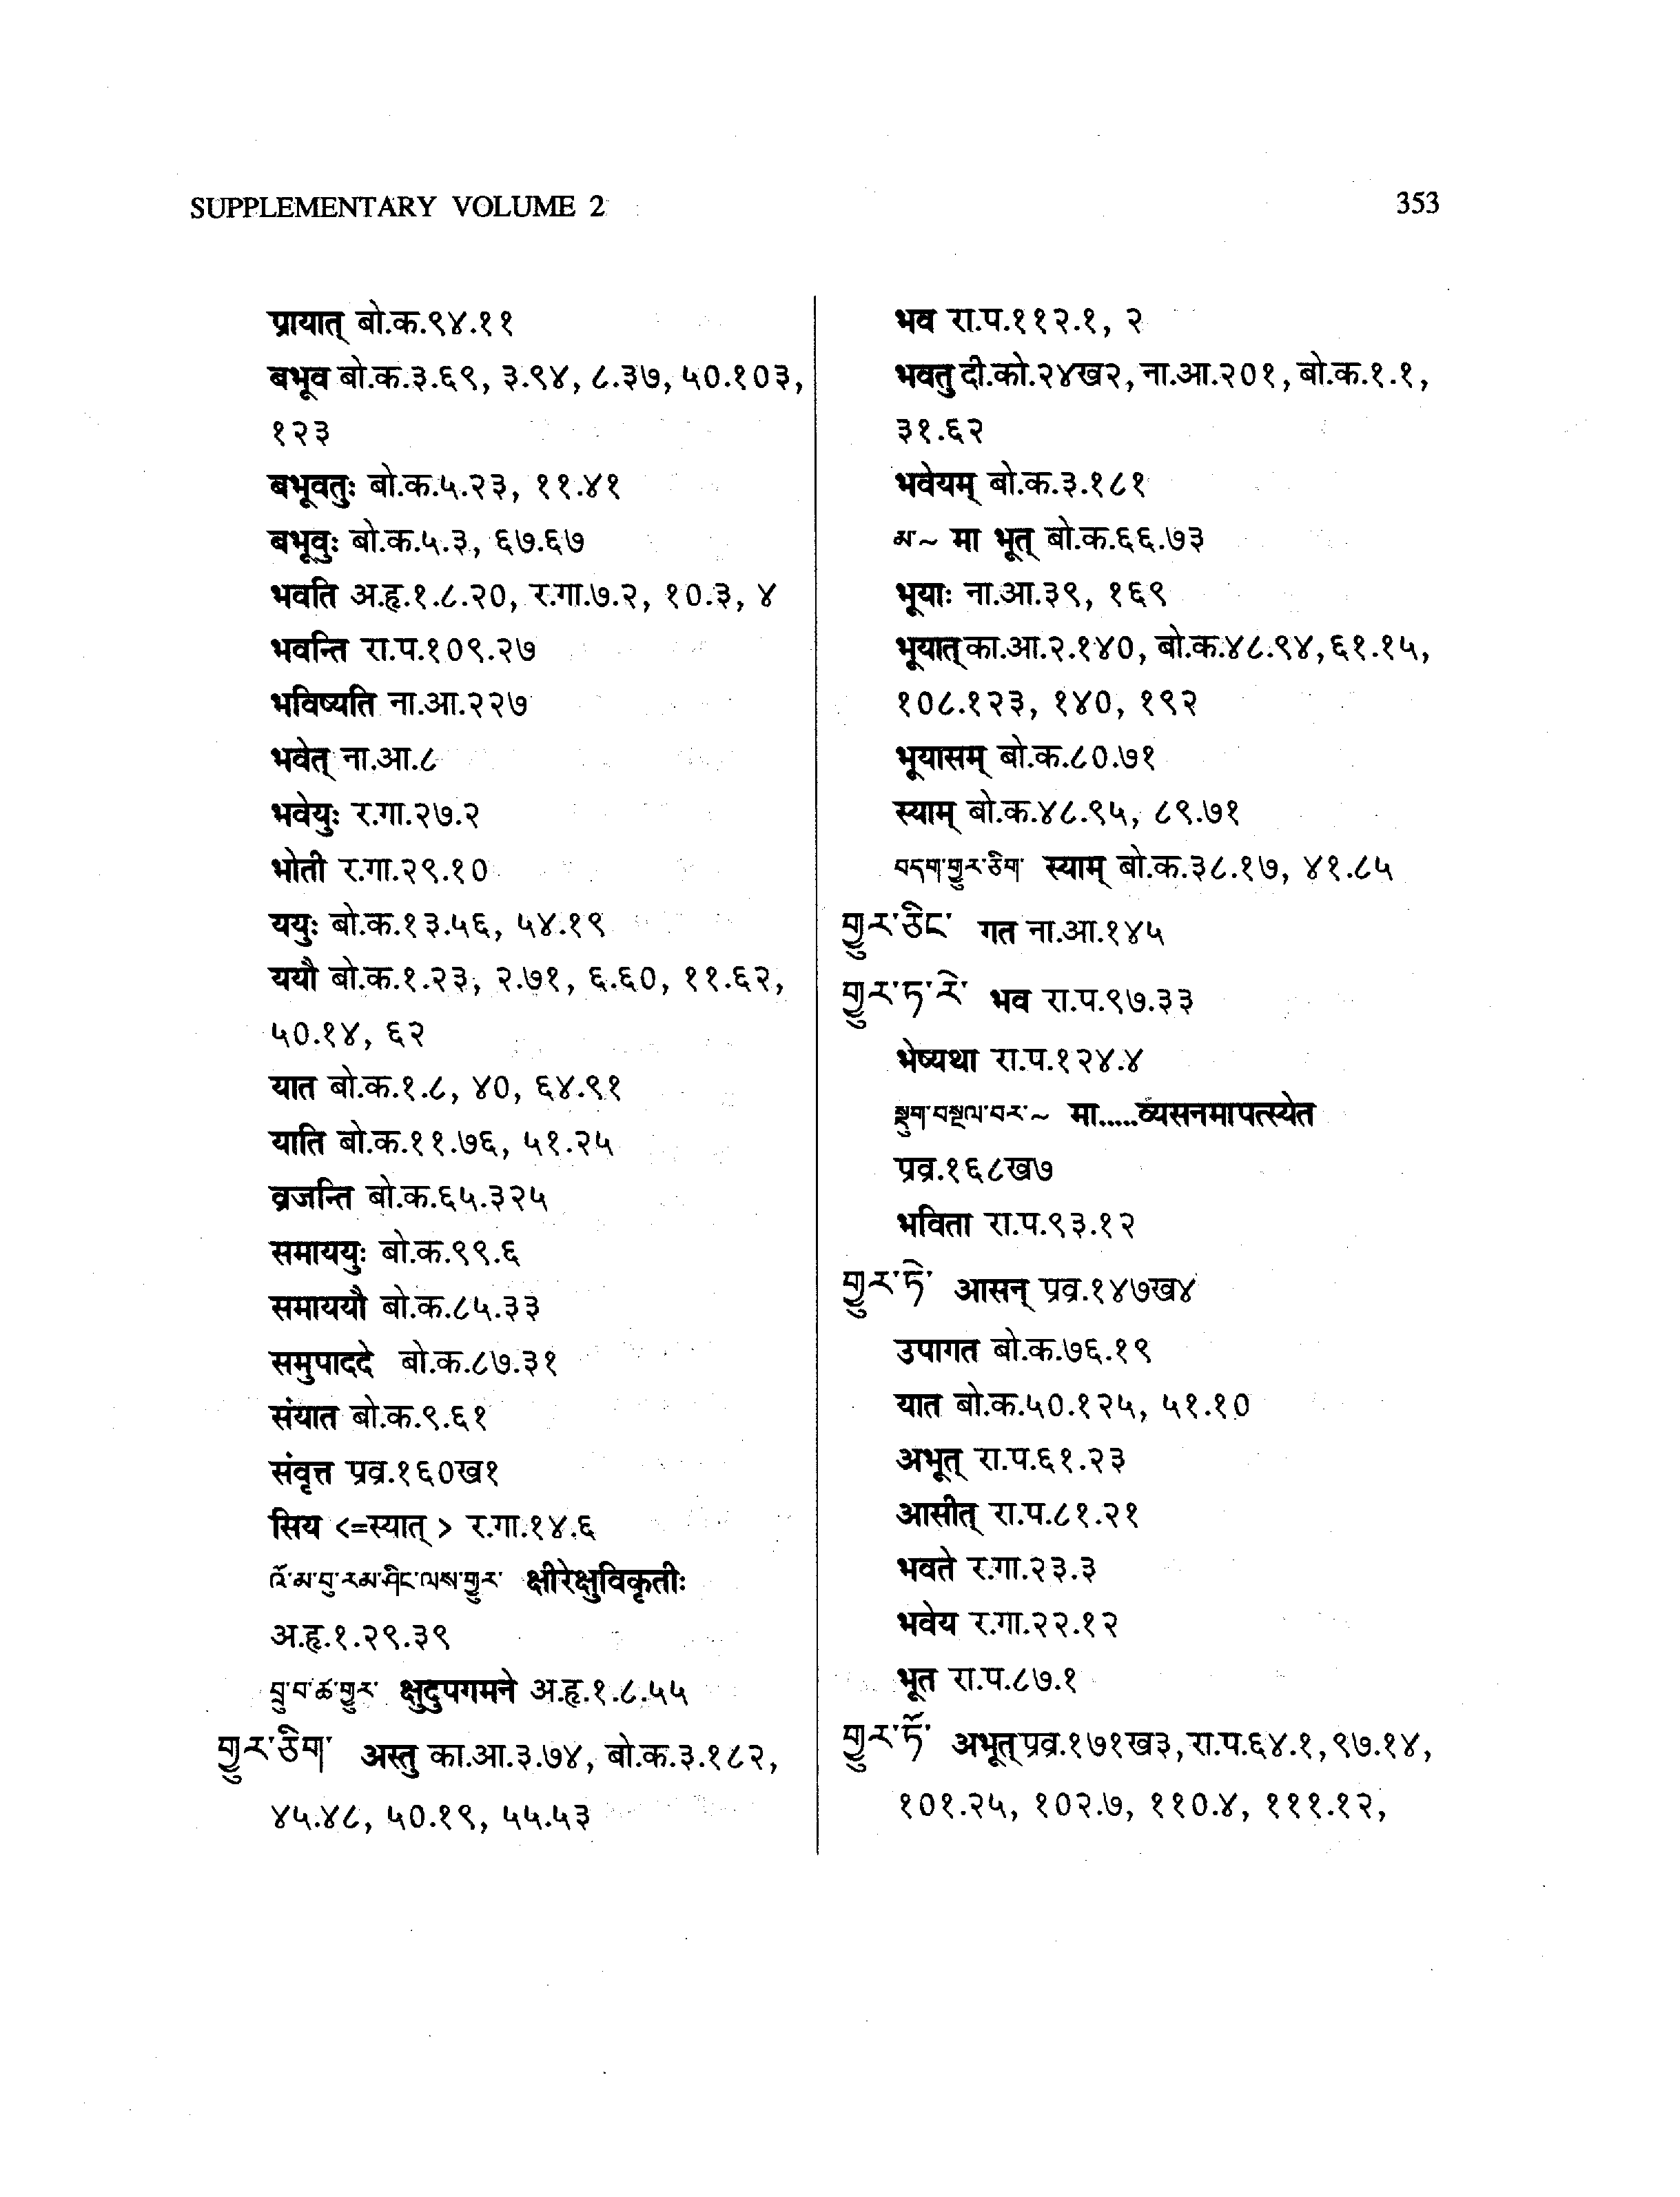 SUPPLEMENTARY VOLUME 2
353
प्रायात् बो.क.९४.११
बभूव बो.क.३.६९, ३.९४, ८.३७, ५०.१०३,
१२३
बभूवतुः बो.क.५.२३, ११.४१
बभूवुः बो.क.५.३, ६७.६७
भवति अ.हृ.१.८.२०, र.गा.७.२, १०.३, ४
भवन्ति रा.प.१०९.२७
भविष्यति ना.आ.२२७
भवेत् ना.आ.८
भवेयुः र.गा.२७.२
भोती र.गा.२९.१०
ययुः बो.क.१३.५६, ५४.१९
ययौ बो.क.१.२३, २.७१, ६.६०, ११.६२,
५०.१४, ६२
यात बो.क.१.८, ४०, ६४.९१
याति बो.क.११.७६, ५१.२५
व्रजन्ति बो.क.६५.३२५
समाययुः बो.क.९९.६
समाययौ बो.क.८५.३३
समुपाददे बो.क.८७.३१
संयात बो.क.९.६१
संवृत्त प्रव्र.१६०ख१
सिय <=स्यात् > र.गा.१४.६
འོ་མ་བུ་རམ་ཤིང་ལས་གྱུར་ क्षीरेक्षुविकृतीः
अ.हृ.१.२९.३९
བྲུ་བ་ཚ་གྱུར་ क्षुदुपगमने अ.हृ.१.८.५५
གྱུར་ཅིག་ अस्तु का.आ.३.७४, बो.क.३.१८२,
४५.४८, ५०.१९, ५५.५३
भव रा.प.११२.१, २
भवतु दी.को.२४ख२, ना.आ.२०१, बो.क.१.१,
३१.६२
भवेयम् बो.क.३.१८१
མ་~ मा भूत् बो.क.६६.७३
भूयाः ना.आ.३९, १६९
भूयात् का.आ.२.१४०, बो.क.४८.९४, ६१.१५,
१०८.१२३, १४०, १९२
भूयासम् बो.क.८०.७१
स्याम् बो.क.४८.९५, ८९.७१
བདག་གྱུར་ཅིག་ स्याम् बो.क.३८.१७, ४१.८५
གྱུར་ཅིང་ गत ना.आ.१४५
གྱུར་ཏ་རེ་ भव रा.प.९७.३३
भेष्यथा रा.प.१२४.४
སྡུག་བསྔལ་བར་~ मा.....व्यसनमापत्स्येत
प्रव्र.१६८ख७
भविता रा.प.९३.१२
གྱུར་ཏེ་ आसन् प्रव्र.१४७ख४
उपागत बो.क.७६.१९
यात बो.क.५०.१२५, ५१.१०
अभूत् रा.प.६१.२३
आसीत् रा.प.८१.२१
भवते र.गा.२३.३
भवेय र.गा.२२.१२
भूत रा.प.८७.१
གྱུར་ཏོ་ अभूत् प्रव्र.१७१ख३, रा.प.६४.१, ९७.१४,
१०१.२५, १०२.७, ११०.४, १११.१२,